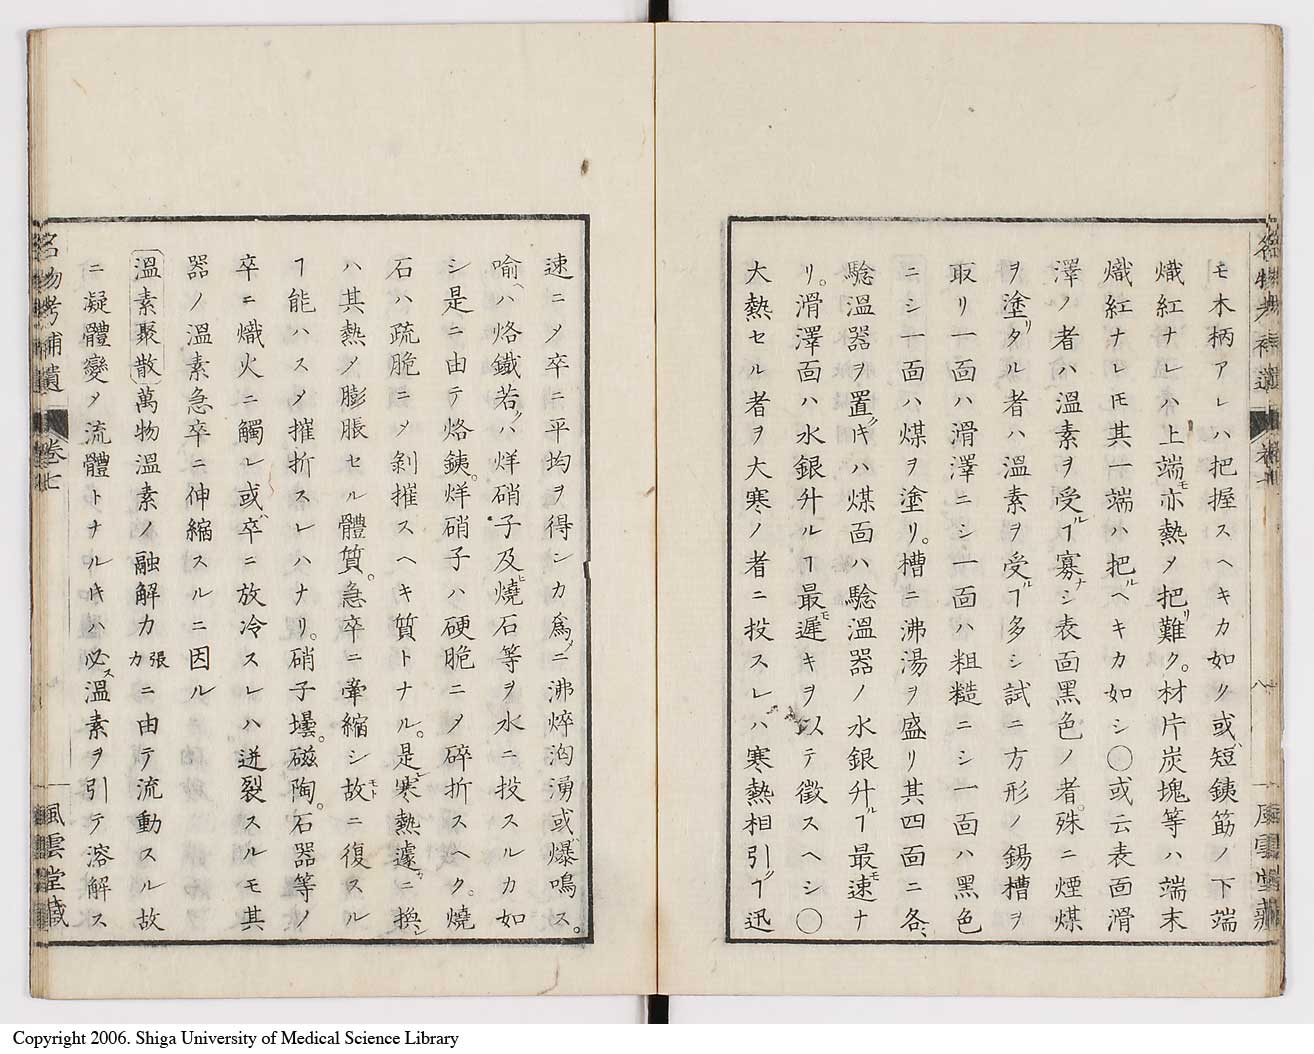 モ木柄アレハ把握スヘキカ如ク或ハ短銕筋ノ下端
熾紅ナレハ上端モ亦熱メ把リ難ク。材片炭塊等ハ端末
熾紅ナレ𪜈其一端ハ把ルヘキカ如シ〇或云表面滑
澤ノ者ハ溫素ヲ受ルヿ寡ナシ表面黑色ノ者。殊ニ煙煤
ヲ塗リタル者ハ溫素ヲ受ルヿ多シ試ニ方形ノ錫槽ヲ
取リ一面ハ滑澤ニシ一面ハ粗糙ニシ一面ハ黑色
ニシ一面ハ煤ヲ塗リ。槽ニ沸湯ヲ盛リ其四面ニ各、
驗溫器ヲ置クキハ煤面ハ驗溫器ノ水銀升ルヿ最モ速ナ
リ。滑澤面ハ水銀升ルヿ最モ遲キヲ以テ徵スヘシ〇
大熱セル者ヲ大寒ノ者ニ投スレハ寒熱相引クヿ迅
速ニメ卒ニ平均ヲ得ンカ爲メニ沸焠洶湧或ハ爆鳴ス。
喻ヘハ烙鐵若クハ烊硝子及ヒ燒石等ヲ水ニ投スルカ如
シ是ニ由テ烙銕。烊硝子ハ硬脆ニメ碎折スヘク。燒
石ハ疏脆ニメ剝摧スヘキ質トナル。是レ寒熱遽カニ換レ
ハ其熱メ膨脹セル體質。急卒ニ牽縮シ故モトニ復スル
ヿ能ハスメ摧折スレハナリ。硝子壜。磁陶。石器等ノ
卒ニ熾火ニ觸レ或ハ卒ニ放冷スレハ迸裂スルモ其
器ノ溫素急卒ニ伸縮スルニ因ル
溫素聚散萬物溫素ノ融解力張力ニ由テ流動スル故
ニ凝體變メ流體トナルキハ必ス溫素ヲ引テ溶解ス
名物考補遺 卷七 風雲堂藏
Copyright 2006. Shiga University of Medical Science Library